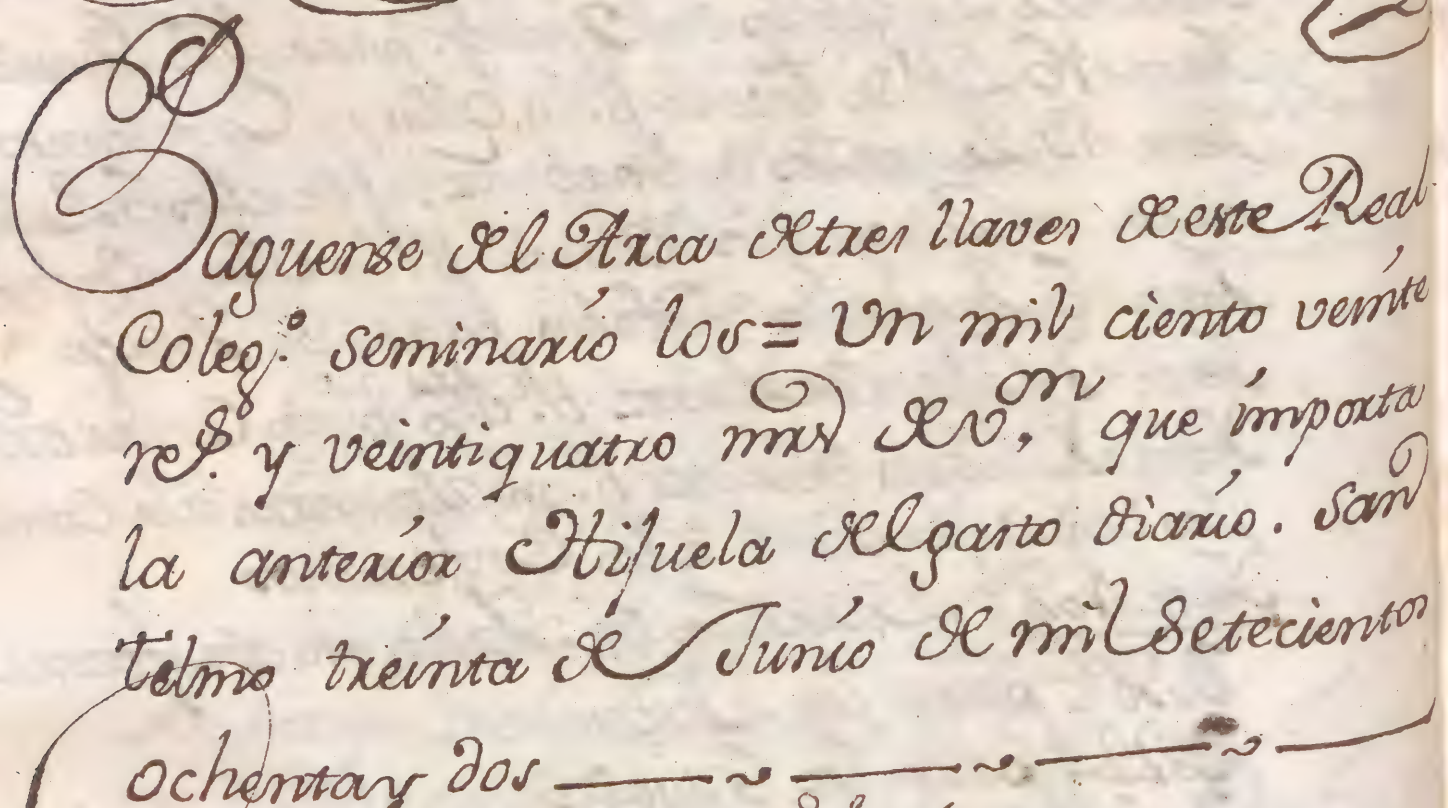 Saquense del Arca de tres llaves de este Real
Coleg.º seminario los = Un mil ciento veinte
rs. y veintiquatro mrs de v.on que importa
la anterior Hijuela del gasto diario. San
Telmo treinta de Junio de mil Setecientos
ochenta y dos